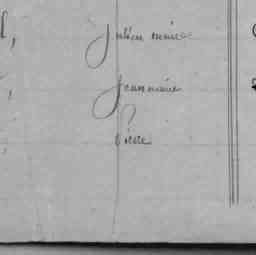 Julien marie
Jean marie
Pierre